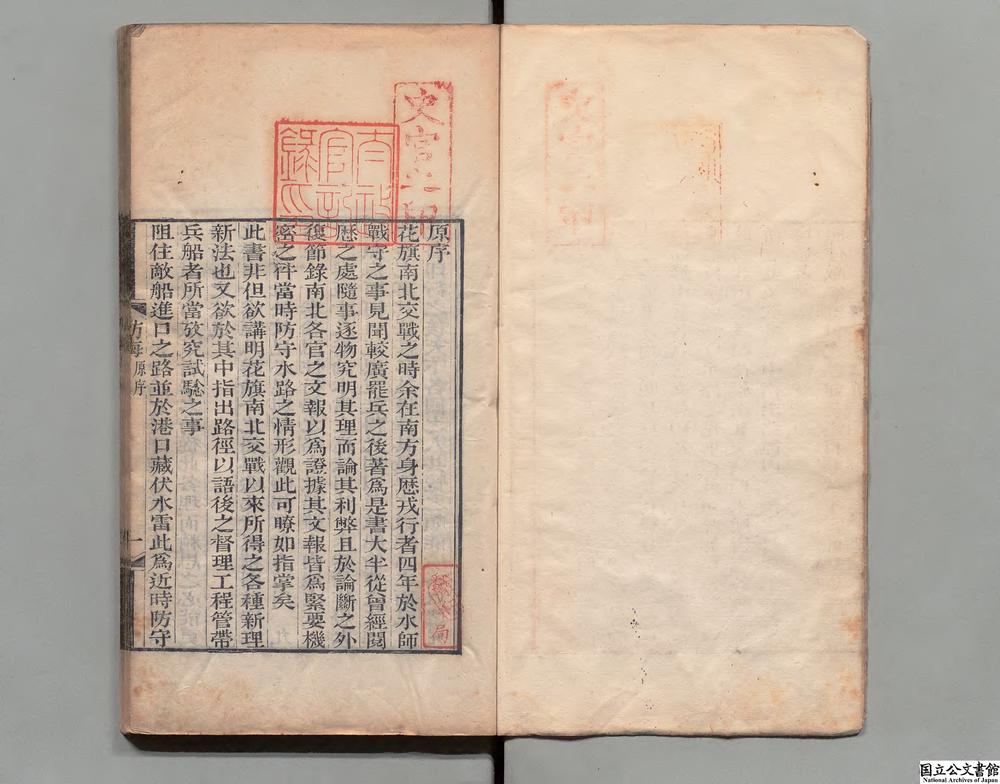 原序
花旗南北交戰之時余在南方身歷戎行者四年於水師
戰守之事見聞較廣罷兵之後著爲是書大半從曾經閱
歷之處隨事逐物究明其理而論其利弊且於論斷之外
復節錄南北各官之文報以爲證據其文報皆爲緊要機
密之件當時防守水路之情形觀此可瞭如指掌矣
此書非但欲講明花旗南北交戰以來所得之各種新理
新法也又欲於其中指出路徑以語後之督理工程管帶
兵船者所當攷究試驗之事
阻住敵船進口之路並於港口藏伏水雷此爲近時防守
防海 原序
一
史官之印
太政官記錄印
國立公文書館
National Archives of Japan